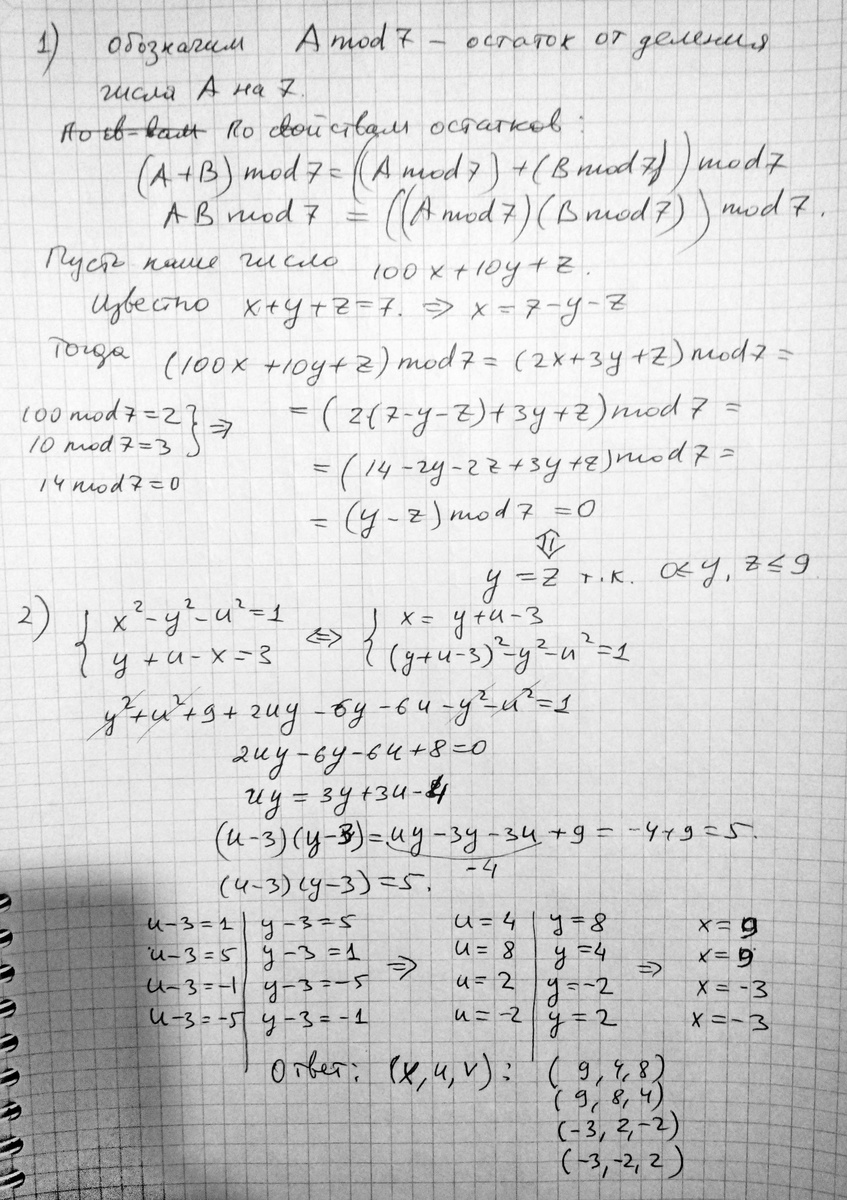 1) Обозначим A mod 7 – остаток от деления
числа A на 7.
По св-вам По свойствам остатков:
(A+B) mod 7 = ((A mod 7) + (B mod 7)) mod 7
AB mod 7 = ((A mod 7)(B mod 7)) mod 7.
Пусть наше число 100x+10y+z.
Известно x+y+z=7. ⇒ x=7-y-z
Тогда (100x+10y+z) mod 7 = (2x+3y+z) mod 7 =
100 mod 7=2
10 mod 7=3 } ⇒
14 mod 7=0
= (2(7-y-z)+3y+z) mod 7 =
= (14-2y-2z+3y+z) mod 7 =
= (y-z) mod 7 = 0
⇕
y=z т.к. 0≤y, z≤9
2) { x²-y²-u²=1 ⇔ { x=y+u-3
y+u-x=3 (y+u-3)²-y²-u²=1
y²+u²+9+2uy-6y-6u-y²-u²=1
2uy-6y-6u+8=0
uy=3y+3u-4
(u-3)(y-3)=uy-3y-3u+9=-4+9=5.
-4
(u-3)(y-3)=5.
u-3=1 | y-3=5 u=4 | y=8 x=9
u-3=5 | y-3=1 ⇒ u=8 | y=4 ⇒ x=9
u-3=-1 | y-3=-5 u=2 | y=-2 x=-3
u-3=-5 | y-3=-1 u=-2 | y=2 x=-3
Ответ: (x,u,v): (9,4,8)
(9,8,4)
(-3,2,-2)
(-3,-2,2)